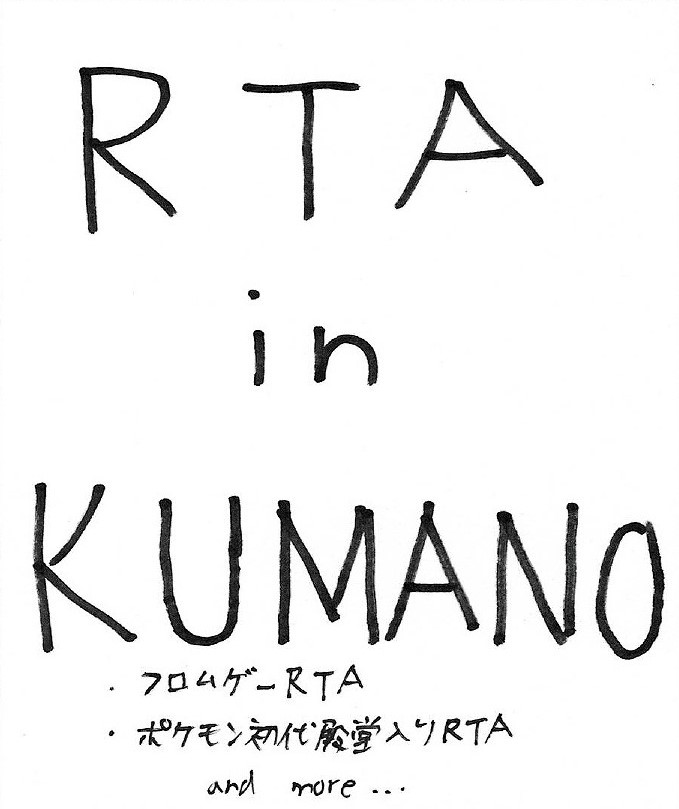 RTA
in
KUMANO
・フロムゲーRTA
・ポケモン初代殿堂入りRTA
and more...